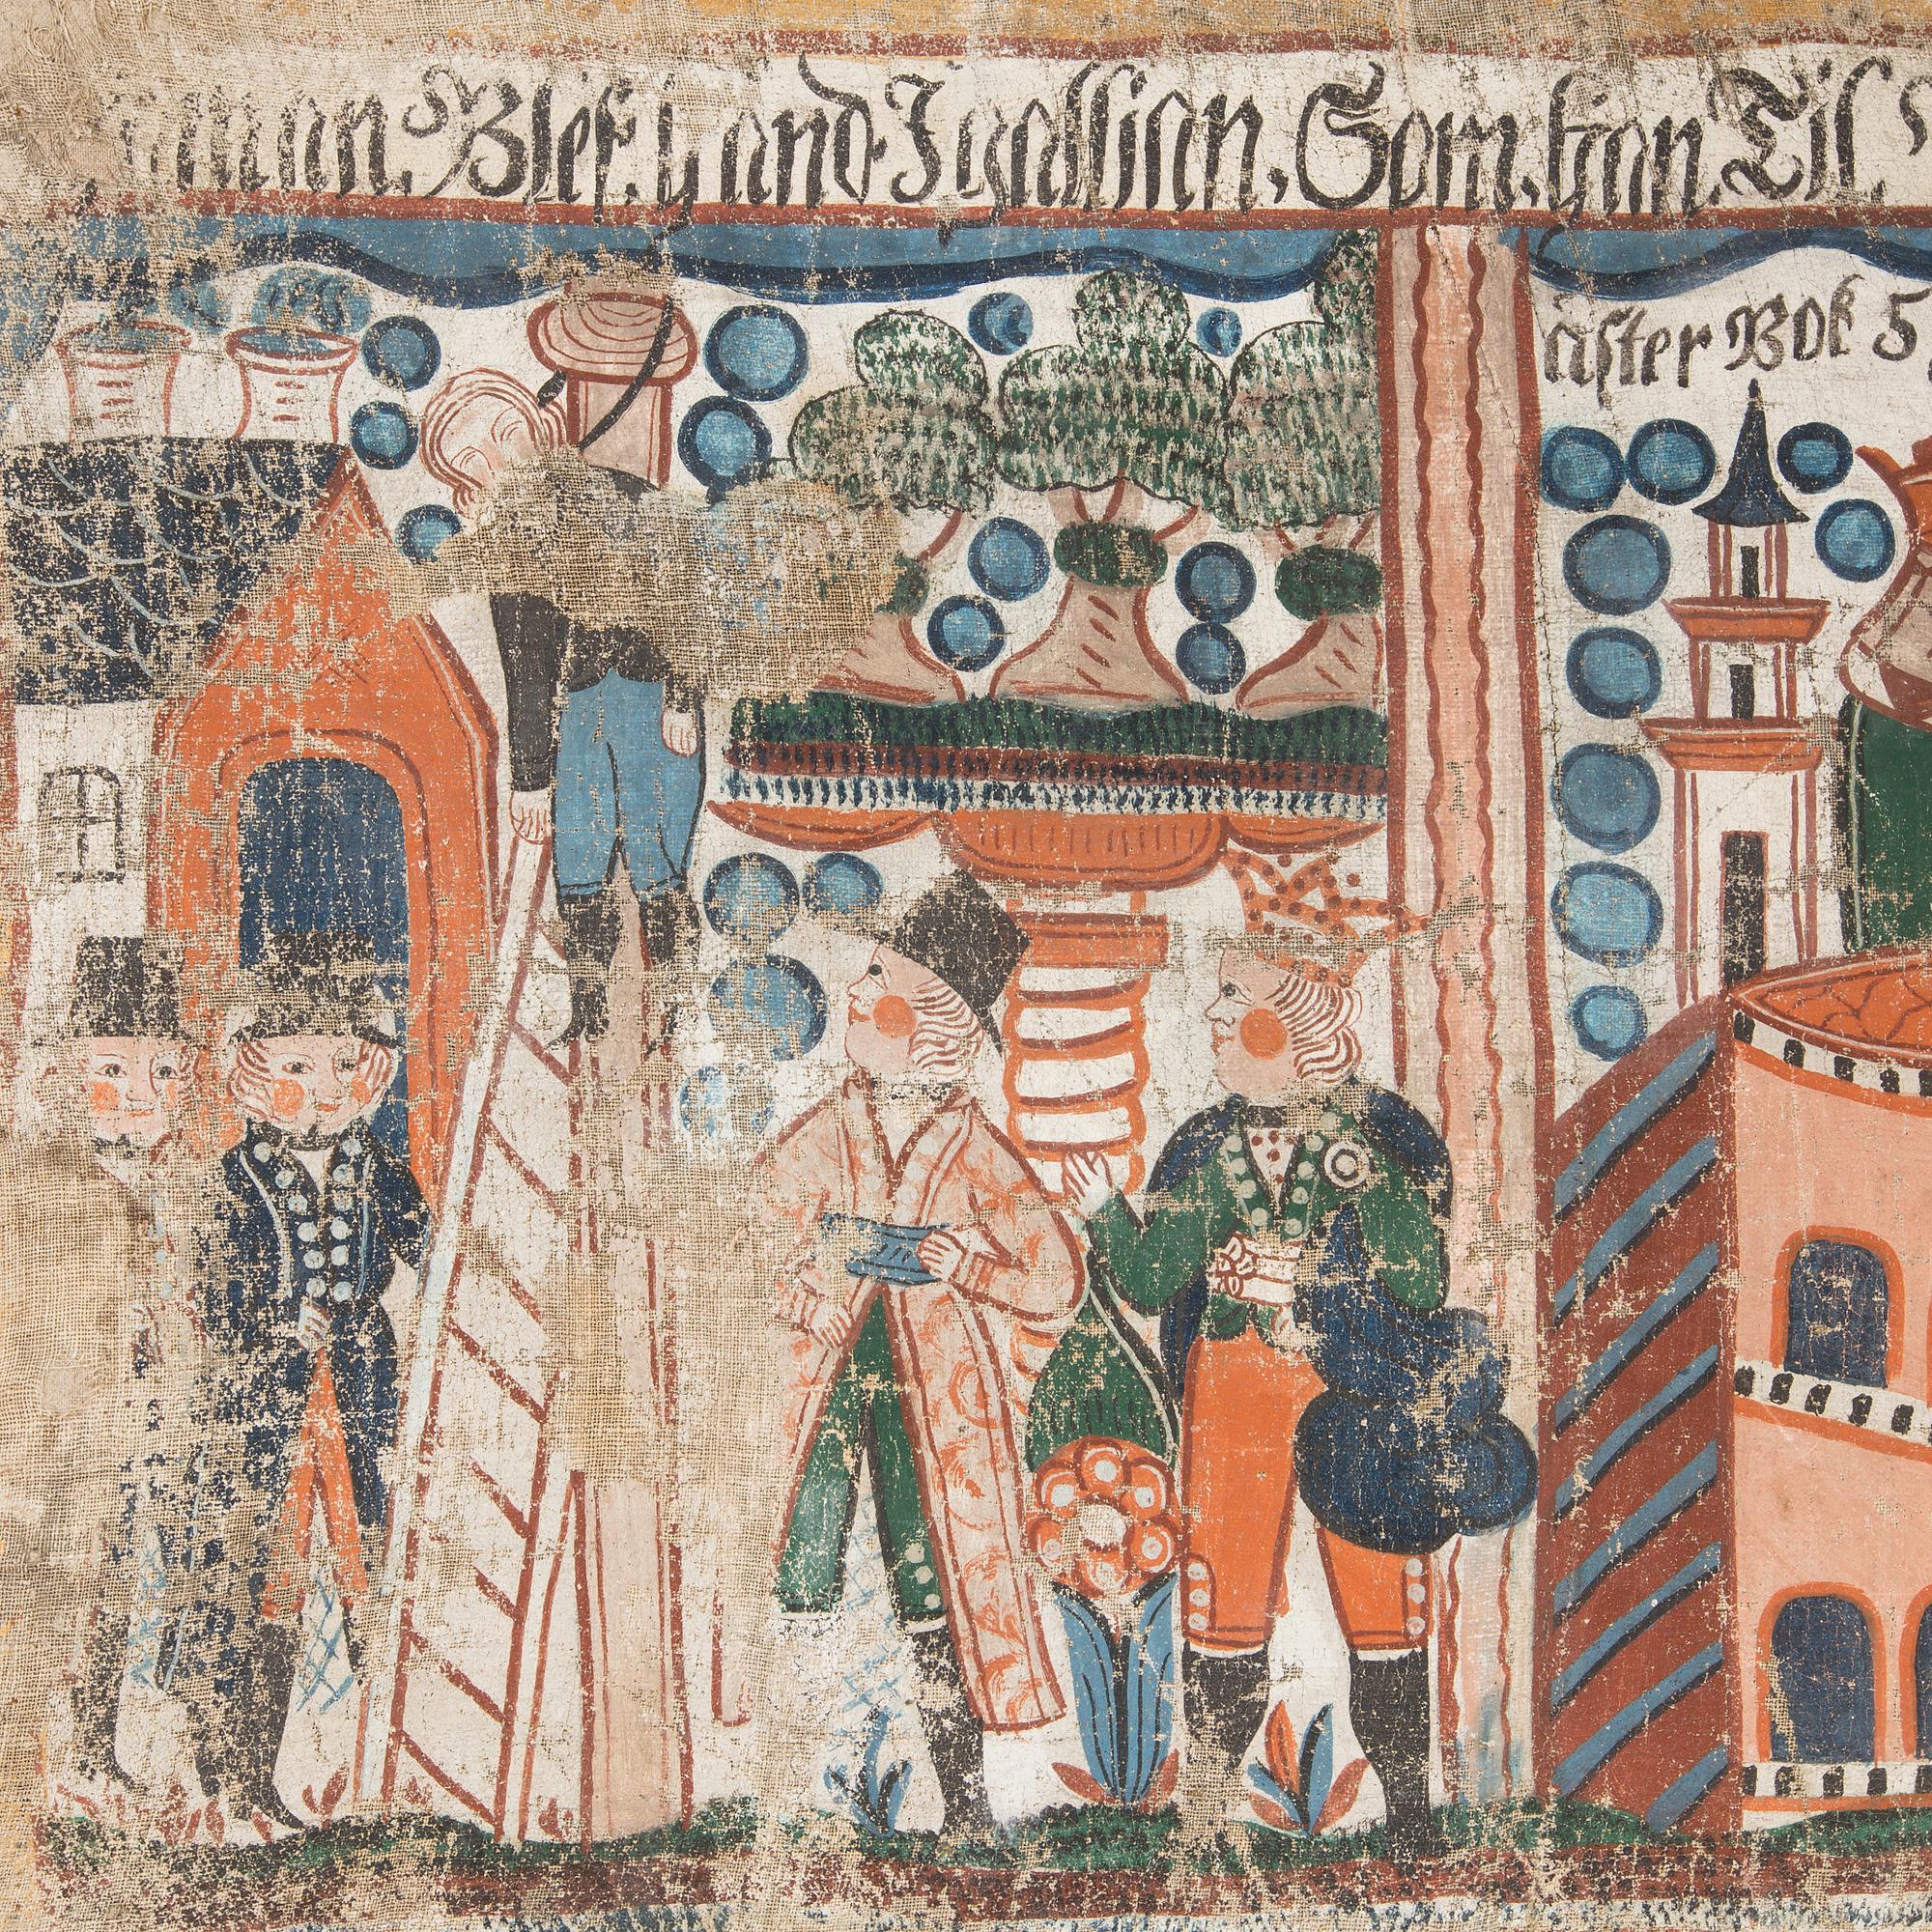 Blef. hand Igallian, Som. han. Til
äster Bok 5